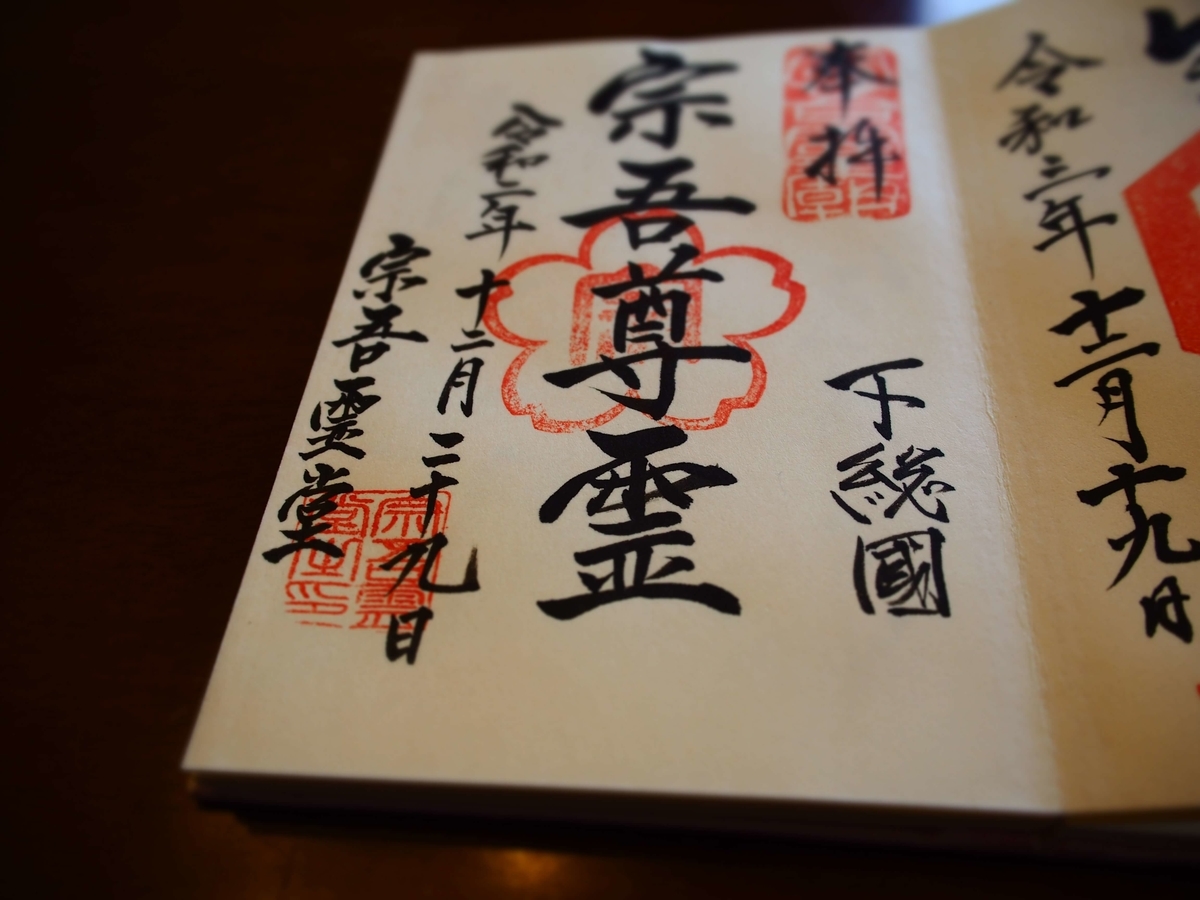 令和二年十二月十九日
奉拝
下総國
宗吾尊霊
令和二年十二月二十九日
宗吾霊堂